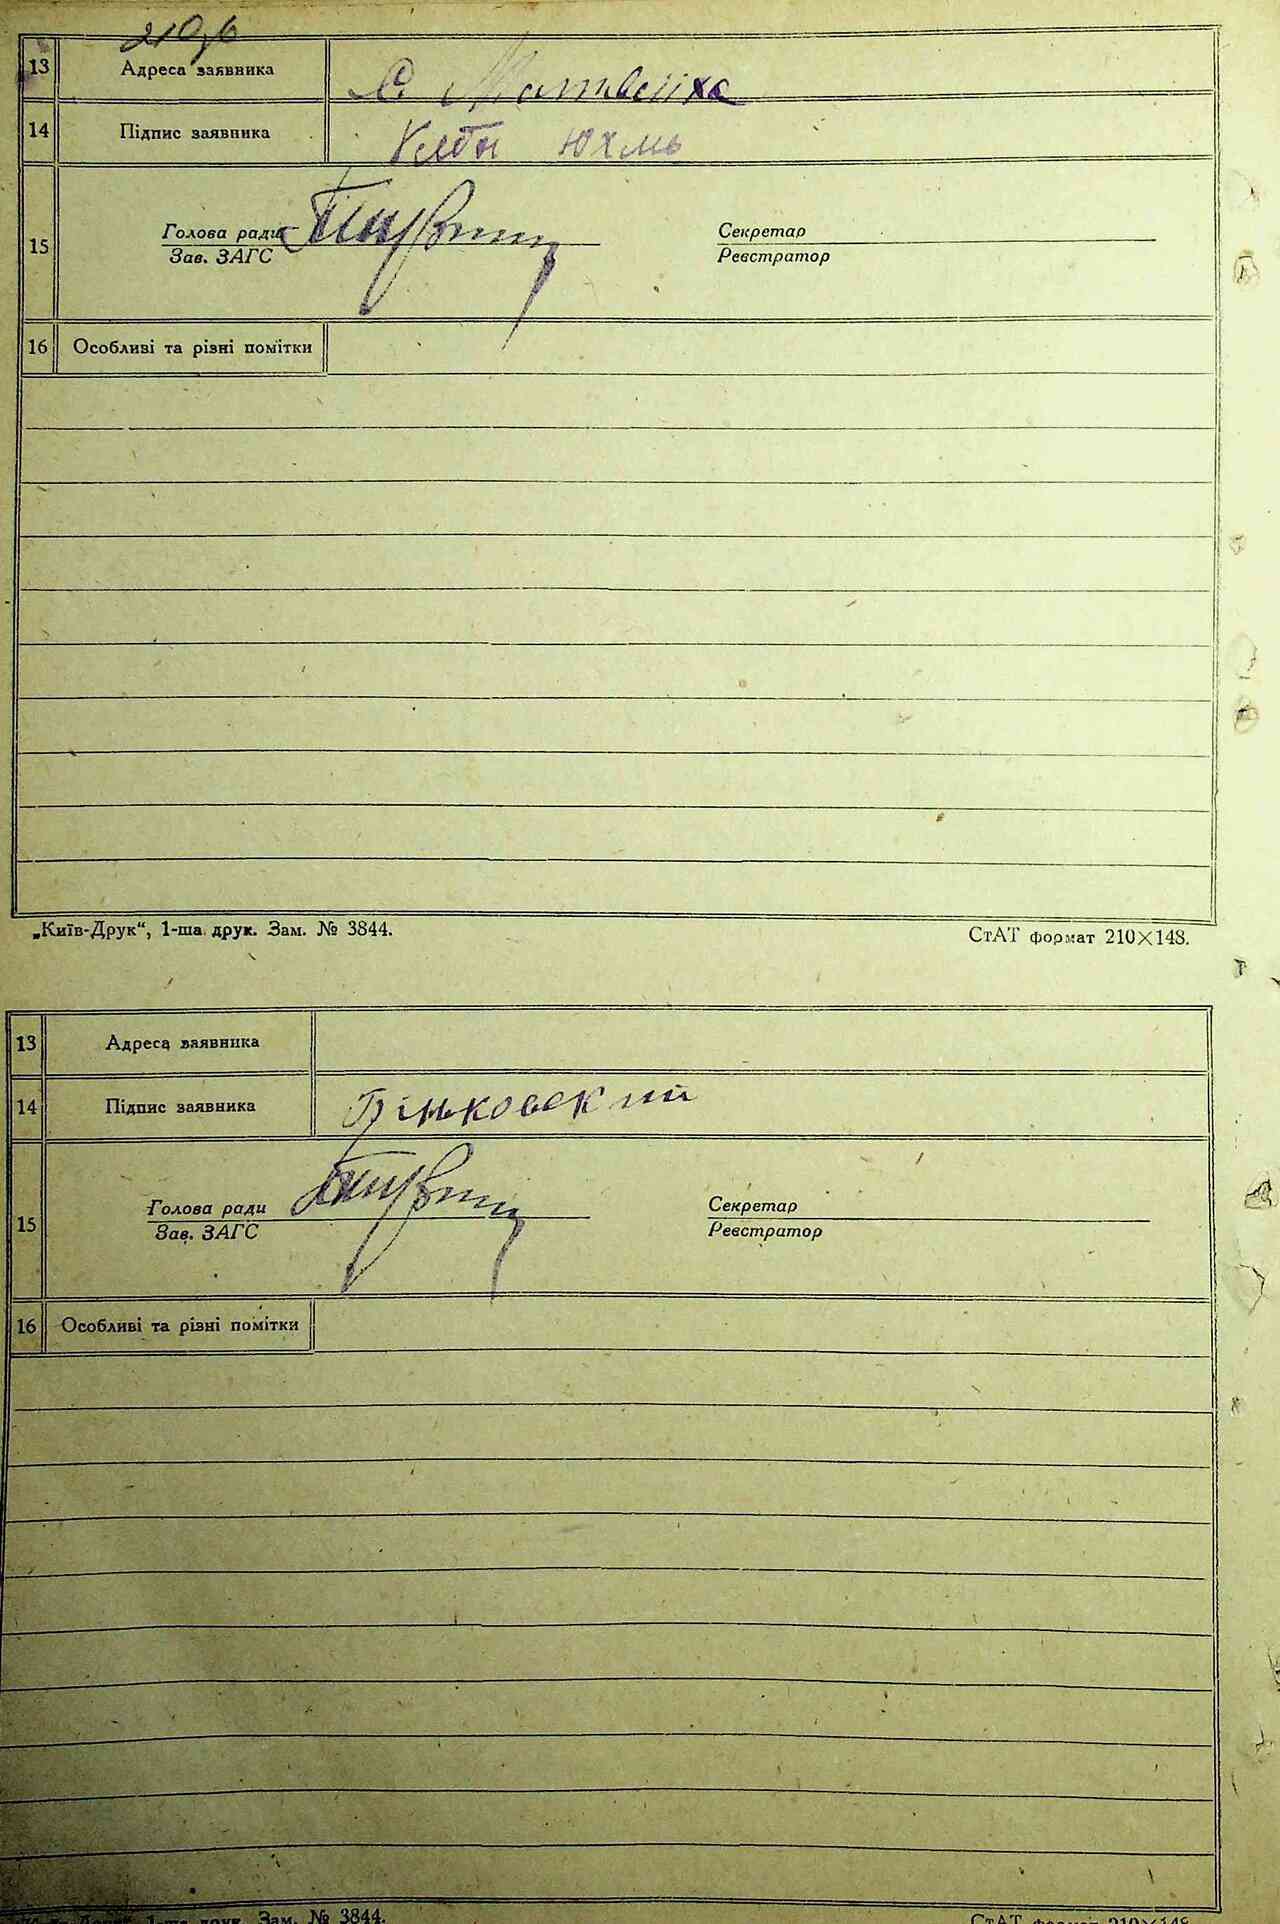 210
13 Адреса заявника С. Матвіїха
14 Підпис заявника Юхмь
15 Голова ради Секретар
Зав. ЗАГС Реєстратор
16 Особливі та різні помітки
„Київ-Друк“, 1-ша друк. Зам. № 3844. СтАТ формат 210×148.
13 Адреса заявника
14 Підпис заявника Бінковский
15 Голова ради Секретар
Зав. ЗАГС Реєстратор
16 Особливі та різні помітки
1-ша друк. Зам. № 3844. СтАТ формат 210×148.